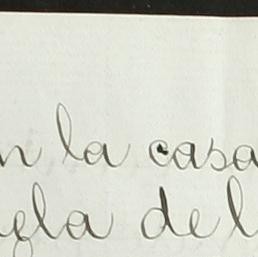 n la casa
gla de l